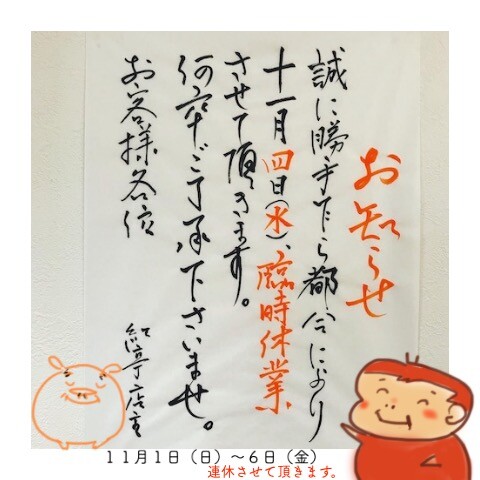 お知らせ
誠に勝手乍ら都合により
十一月四日(水)、臨時休業
させて頂きます。
何卒ご了承下さいませ。
お客様各位
紅亭店主
11月1日（日）～6日（金）
連休させて頂きます。